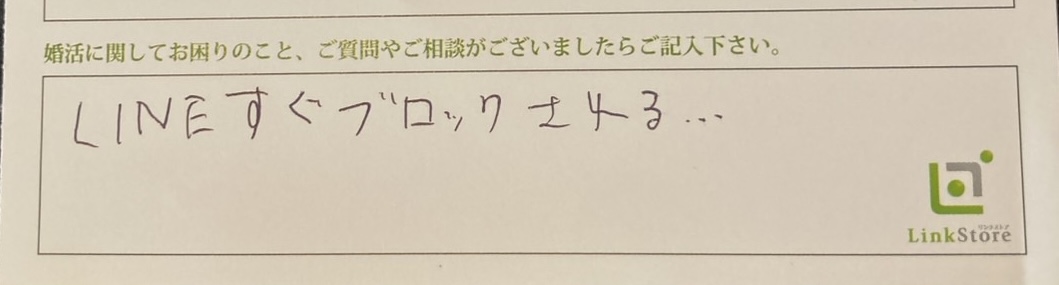 婚活に関してお困りのこと、ご質問やご相談がございましたらご記入下さい。
LINEすぐブロックされる...
リンクストア
LinkStore